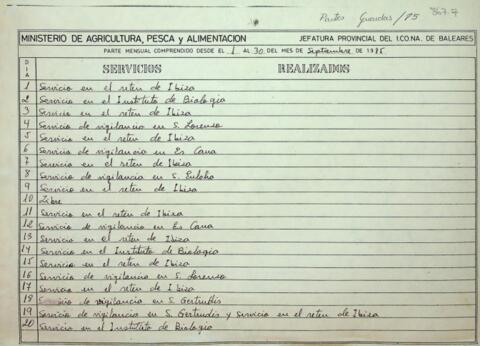 Partes Guardas/85
367.7
MINISTERIO DE AGRICULTURA, PESCA y ALIMENTACION
JEFATURA PROVINCIAL DEL I.CO.NA. DE BALEARES
PARTE MENSUAL COMPRENDIDO DESDE EL 1 AL 30 DEL MES DE Septiembre DE 1985
DIA SERVICIOS REALIZADOS
1 Servicio en el reten de Ibiza
2 Servicio en el Instituto de Biologia
3 Servicio en el reten de Ibiza
4 Servicio de vigilancia en S. Lorenso
5 Servicio en el reten de Ibiza
6 Servicio de vigilancia en Es Cana
7 Servicio en el reten de Ibiza
8 Servicio de vigilancia en S. Eulalia
9 Servicio en el reten de Ibiza
10 Libre
11 Servicio en el reten de Ibiza
12 Servicio de vigilancia en Es Cana
13 Servicio en el reten de Ibiza
14 Servicio en el Instituto de Biologia
15 Servicio en el reten de Ibiza
16 Servicio de vigilancia en S. Lorenso
17 Servicio en el reten de Ibiza
18 Servicio de vigilancia en S. Gertrudis
19 Servicio de vigilancia en S. Gertrudis y servicio en el reten de Ibiza
20 Servicio en el Instituto de Biologia